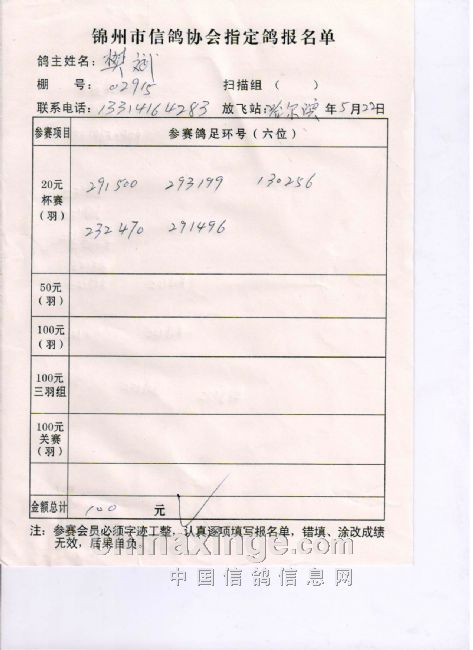 锦州市信鸽协会指定鸽报名单
鸽主姓名: 樊斌
棚 号: 02915 扫描组 ( )
联系电话: 13314164283 放飞站: 哈尔滨 年5月22日
参赛项目 参赛鸽足环号(六位)
20元
杯赛
(羽)
291500 293199 130256
232470 291496
50元
(羽)
100元
(羽)
100元
三羽组
100元
关赛
(羽)
金额总计 100 元
注: 参赛会员必须字迹工整、认真逐项填写报名单,错填、涂改成绩
无效,后果自负
chinaxinge.com
中国信鸽信息网